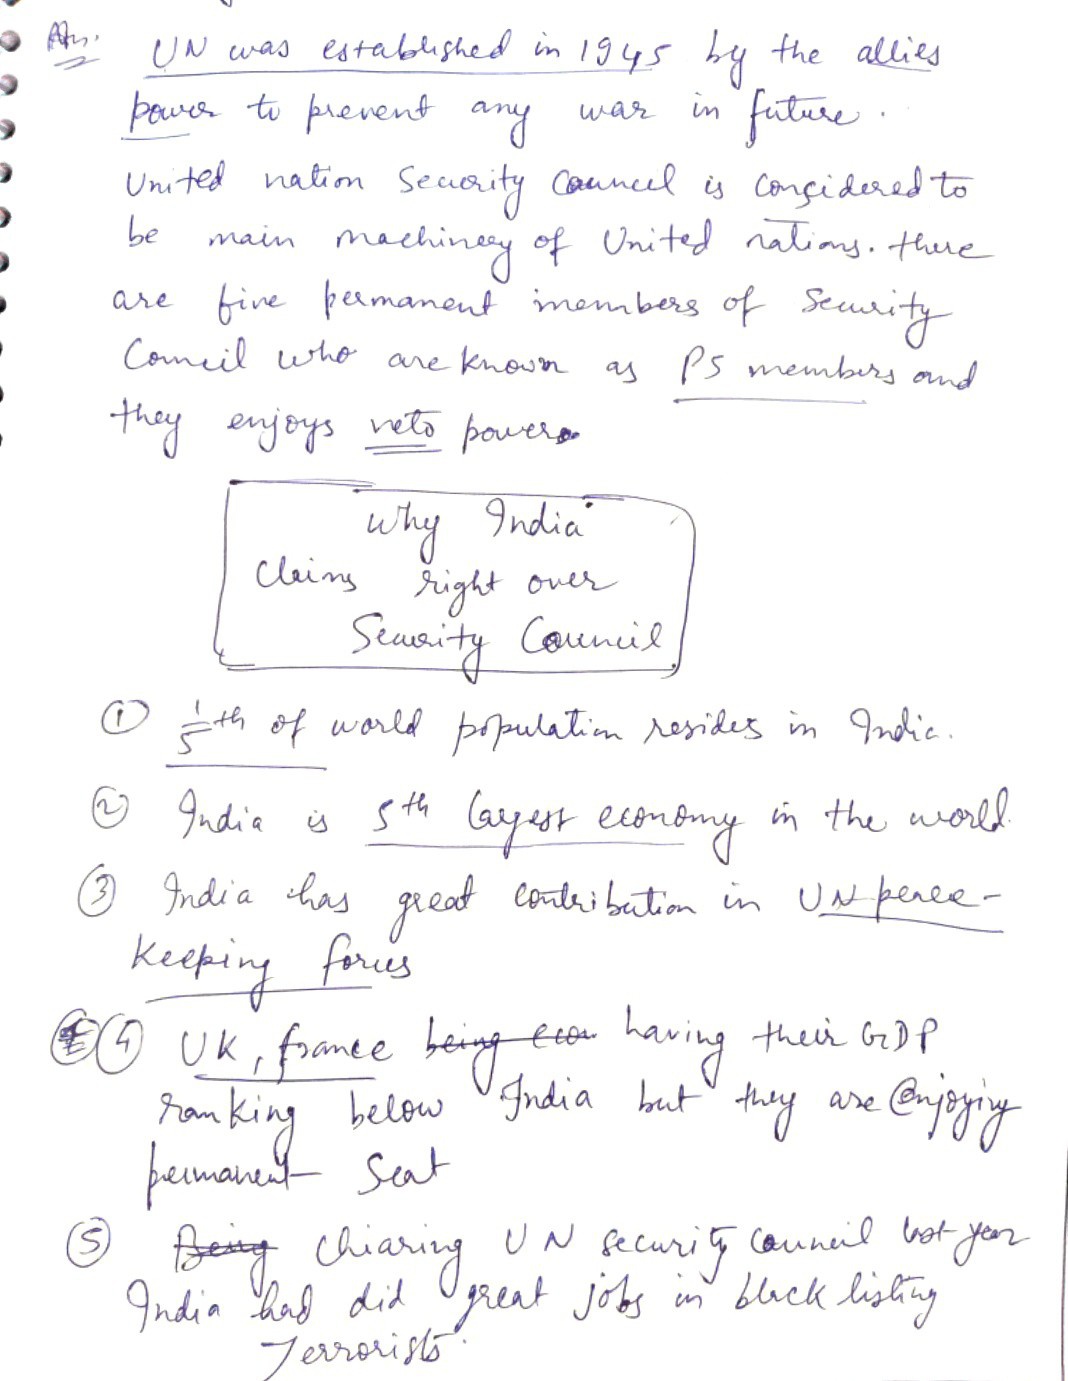 Ans.
UN was established in 1945 by the allies
power to prevent any war in future.
United nation Security Council is considered to
be main machinery of United nations. there
are five permanent members of Security
Council who are known as P5 members and
they enjoys veto power.
Why India
claims right over
Security Council
① 1/5th of world population resides in India.
② India is 5th largest economy in the world.
③ India has great contribution in UN peace-
keeping forces
④ UK, france being econ having their GDP
ranking below India but they are enjoying
permanent seat
⑤ Being chiaring UN security council last year
India had did great jobs in black listing
Terrorists.